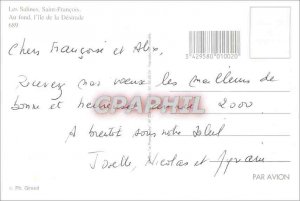 Les Salines, Saint-François,
Au fond, l'île de la Désirade
689
Chers Françoise et Alix,
3 429580 010020
Recevez nos vœux les meilleurs de
bonne et heureuse année 2000.
A bientôt sous notre soleil
Joselle, Nicolas et
PAR AVION
© Ph. Giraud
DELCAMPHIC